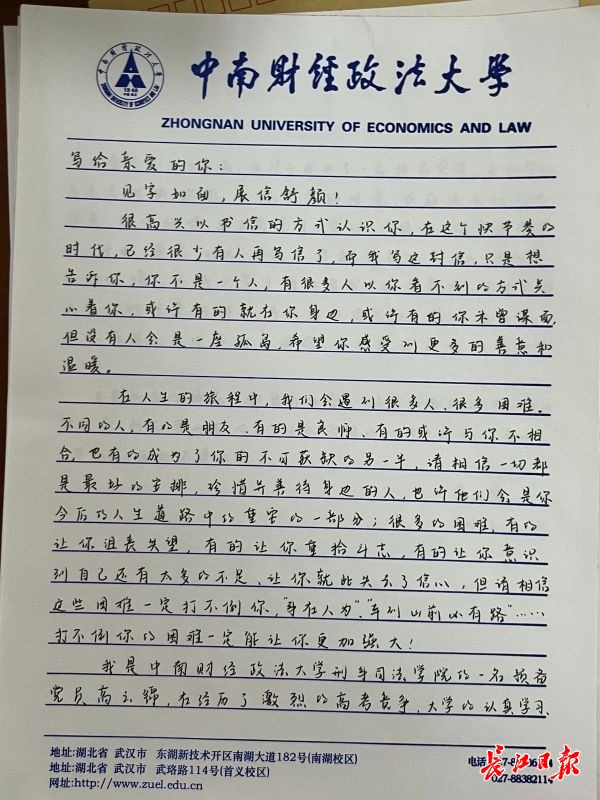 中南财经政法大学
1948
中南财经政法大学
ZHONGNAN UNIVERSITY OF ECONOMICS AND LAW
写给亲爱的你：
见字如面，展信舒颜！
很高兴以书信的方式认识你，在这个快节奏的
时代，已经很少有人再写信了，而我写这封信，只是想
告诉你，你不是一个人，有很多人以你看不到的方式关
心着你，或许有的就在你身边，或许有的你未曾谋面，
但没有人会是一座孤岛，希望你感受到更多的善意和
温暖。
在人生的旅程中，我们会遇到很多人、很多困难。
不同的人，有的是朋友、有的是良师、有的或许与你不相
合，也有的成为了你的不可获缺的另一半，请相信一切都
是最好的安排，珍惜并善待身边的人，也许他们会是你
今后的人生道路中的重要的一部分；很多的困难，有的
让你沮丧失望，有的让你重拾斗志，有的让你意识
到自己还有太多的不足、让你就此失去了信心，但请相信
这些困难一定打不倒你，“事在人为”、“车到山前必有路”……
打不倒你的困难一定能让你更加强大！
我是中南财经政法大学刑事司法学院的一名预备
党员高云锦，在经历了激烈的高考竞争、大学的认真学习、
地址:湖北省 武汉市 东湖新技术开发区南湖大道182号(南湖校区)
地址:湖北省 武汉市 武珞路114号(首义校区)
网址:http://www.zuel.edu.cn
电话
027-88382114
长江日报